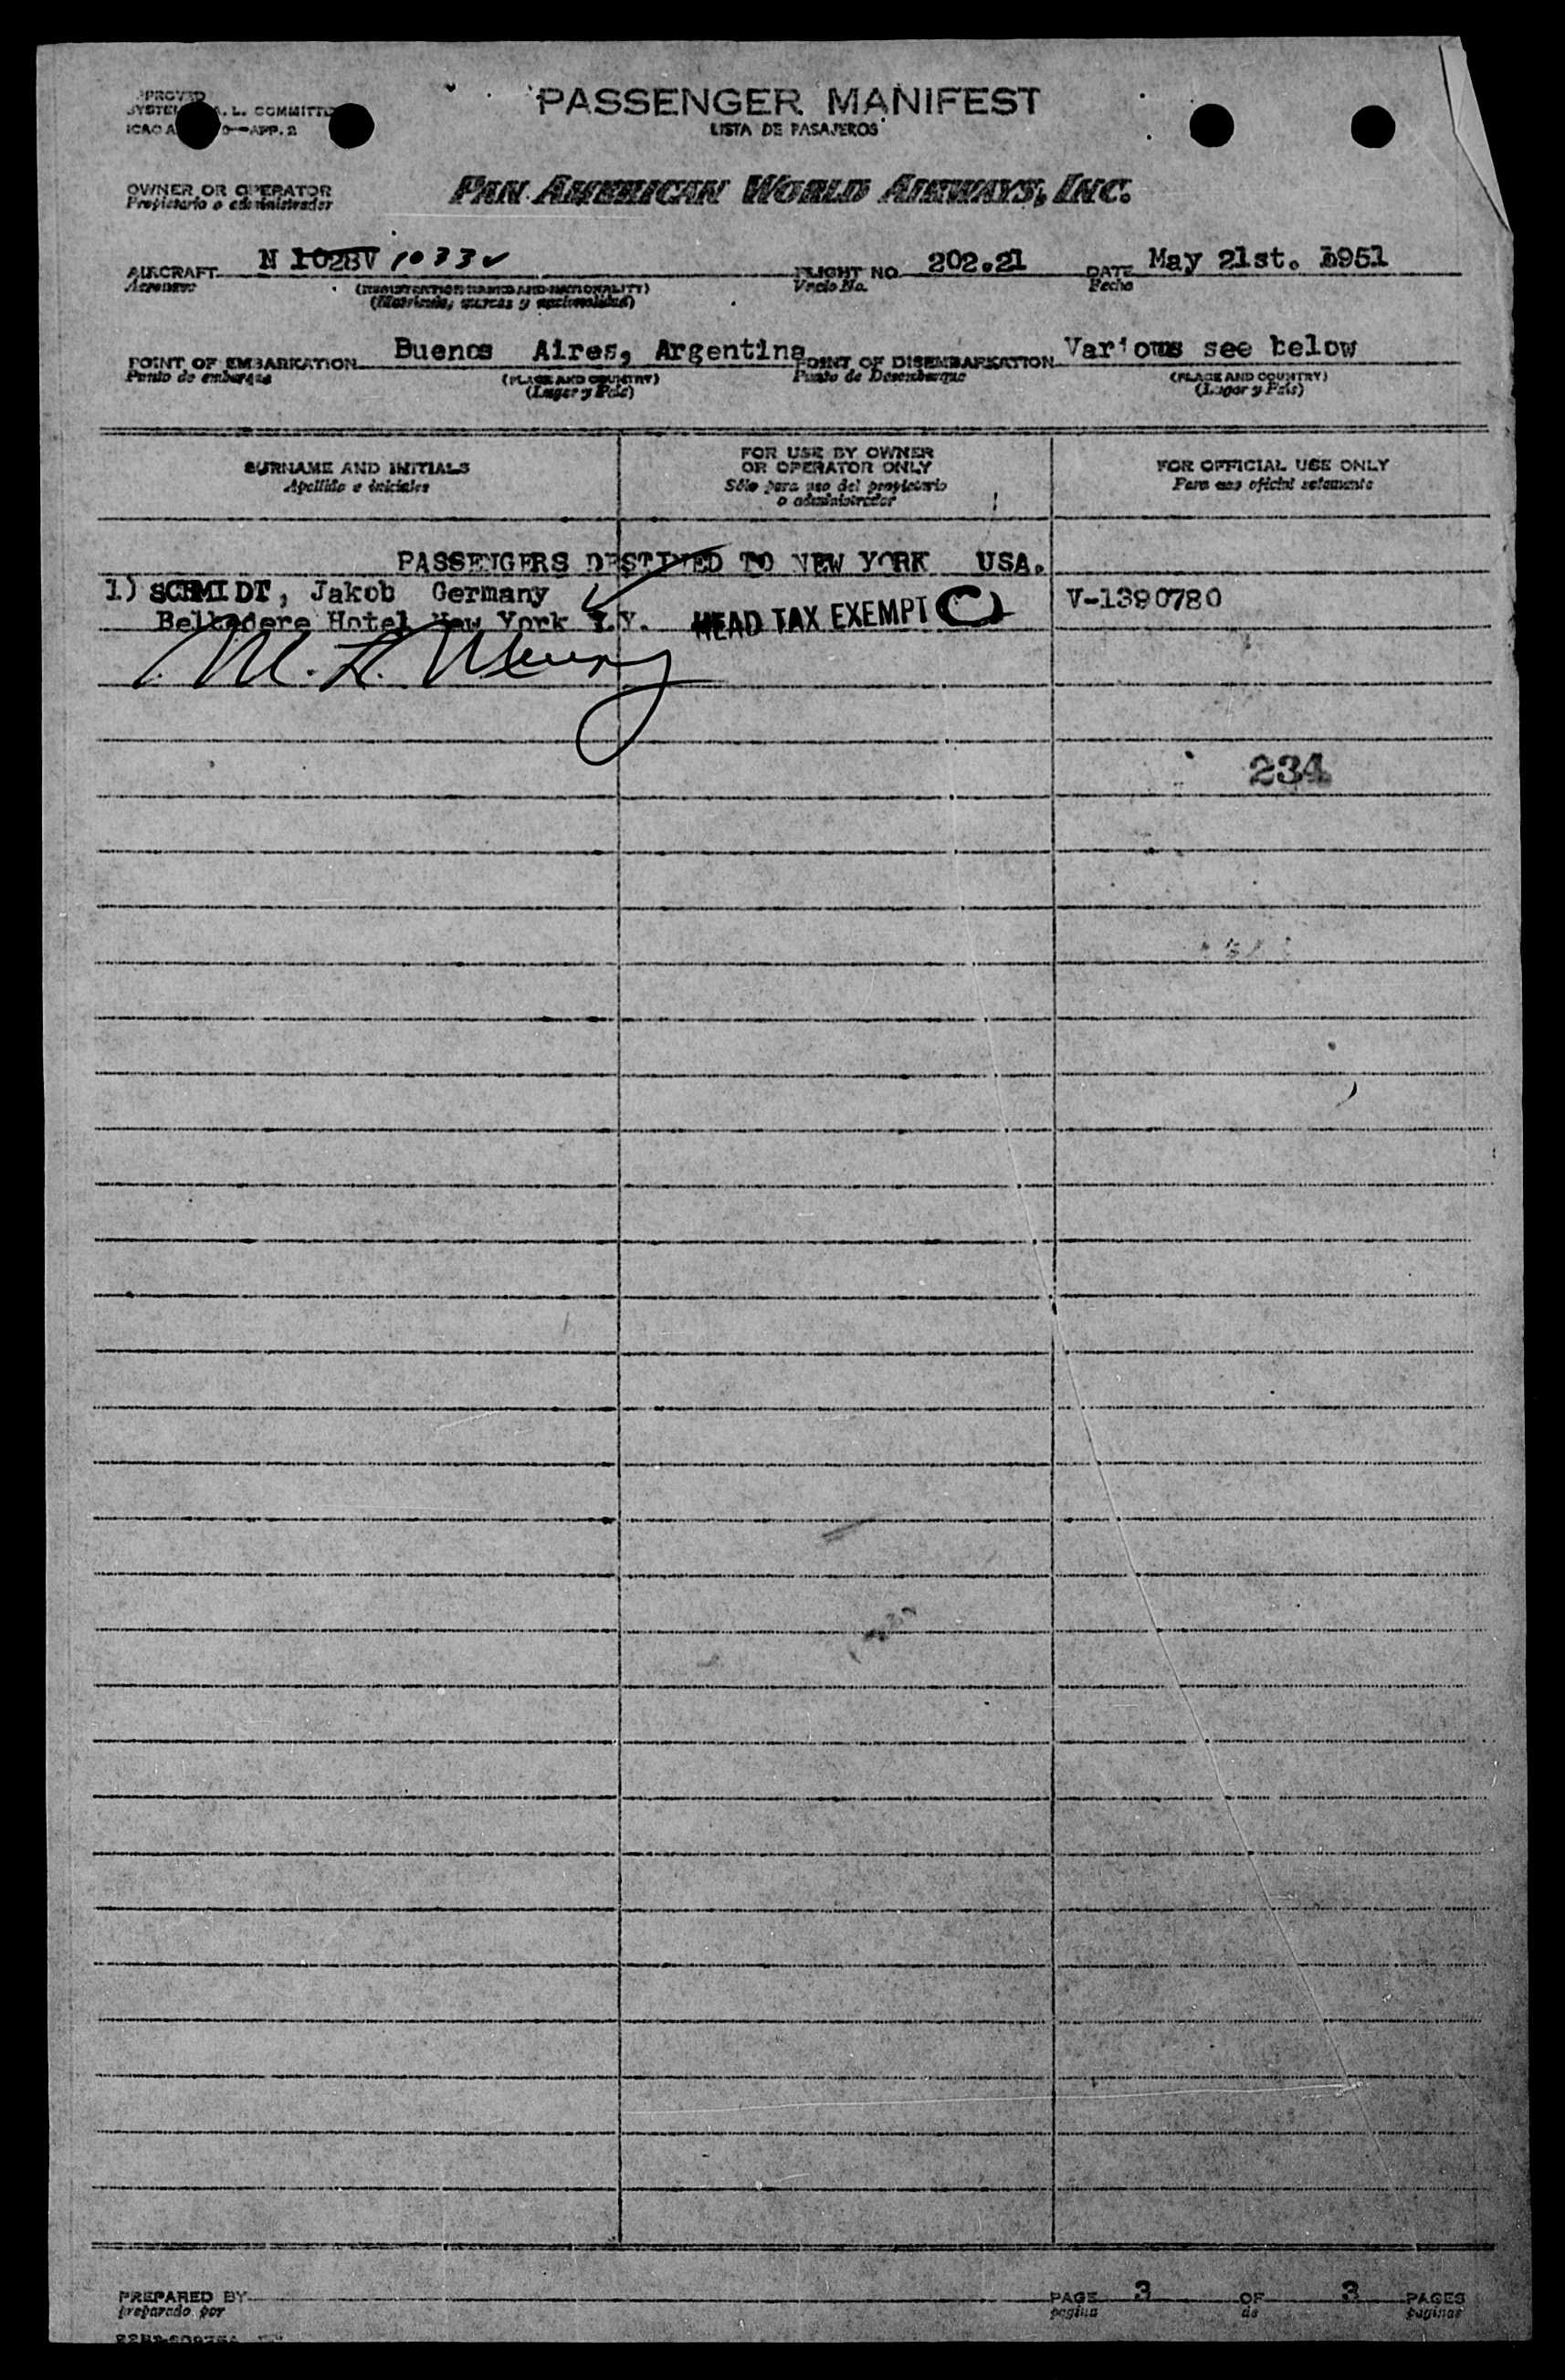 PASSENGER MANIFEST
LISTA DE PASAJEROS
A. L. COMMITTE
APP. 2
OWNER OR OPERATOR
Propietario o administrador
PAN AMERICAN WORLD AIRWAYS, INC.
AIRCRAFT N 1028V 1033V FLIGHT NO. 202.21 DATE May 21st. 1951
Aeronave (REGISTRATION MARKS AND NATIONALITY) Vuelo No. Fecha
(Matrícula, marcas y nacionalidad)
POINT OF EMBARKATION Buenos Aires, Argentina POINT OF DISEMBARKATION Various see below
Punto de embarque (PLACE AND COUNTRY) Punto de Desembarque (PLACE AND COUNTRY)
(Lugar y País) (Lugar y País)
SURNAME AND INITIALS
Apellido e iniciales
FOR USE BY OWNER
OR OPERATOR ONLY
Sólo para uso del propietario
o administrador
FOR OFFICIAL USE ONLY
Para uso oficial solamente
PASSENGERS DESTINED TO NEW YORK USA.
1) SCHMIDT, Jakob Germany V-1390780
Belvedere Hotel New York N.Y. HEAD TAX EXEMPT
234
PREPARED BY PAGE 3 OF 3 PAGES
preparado por pagina de paginas